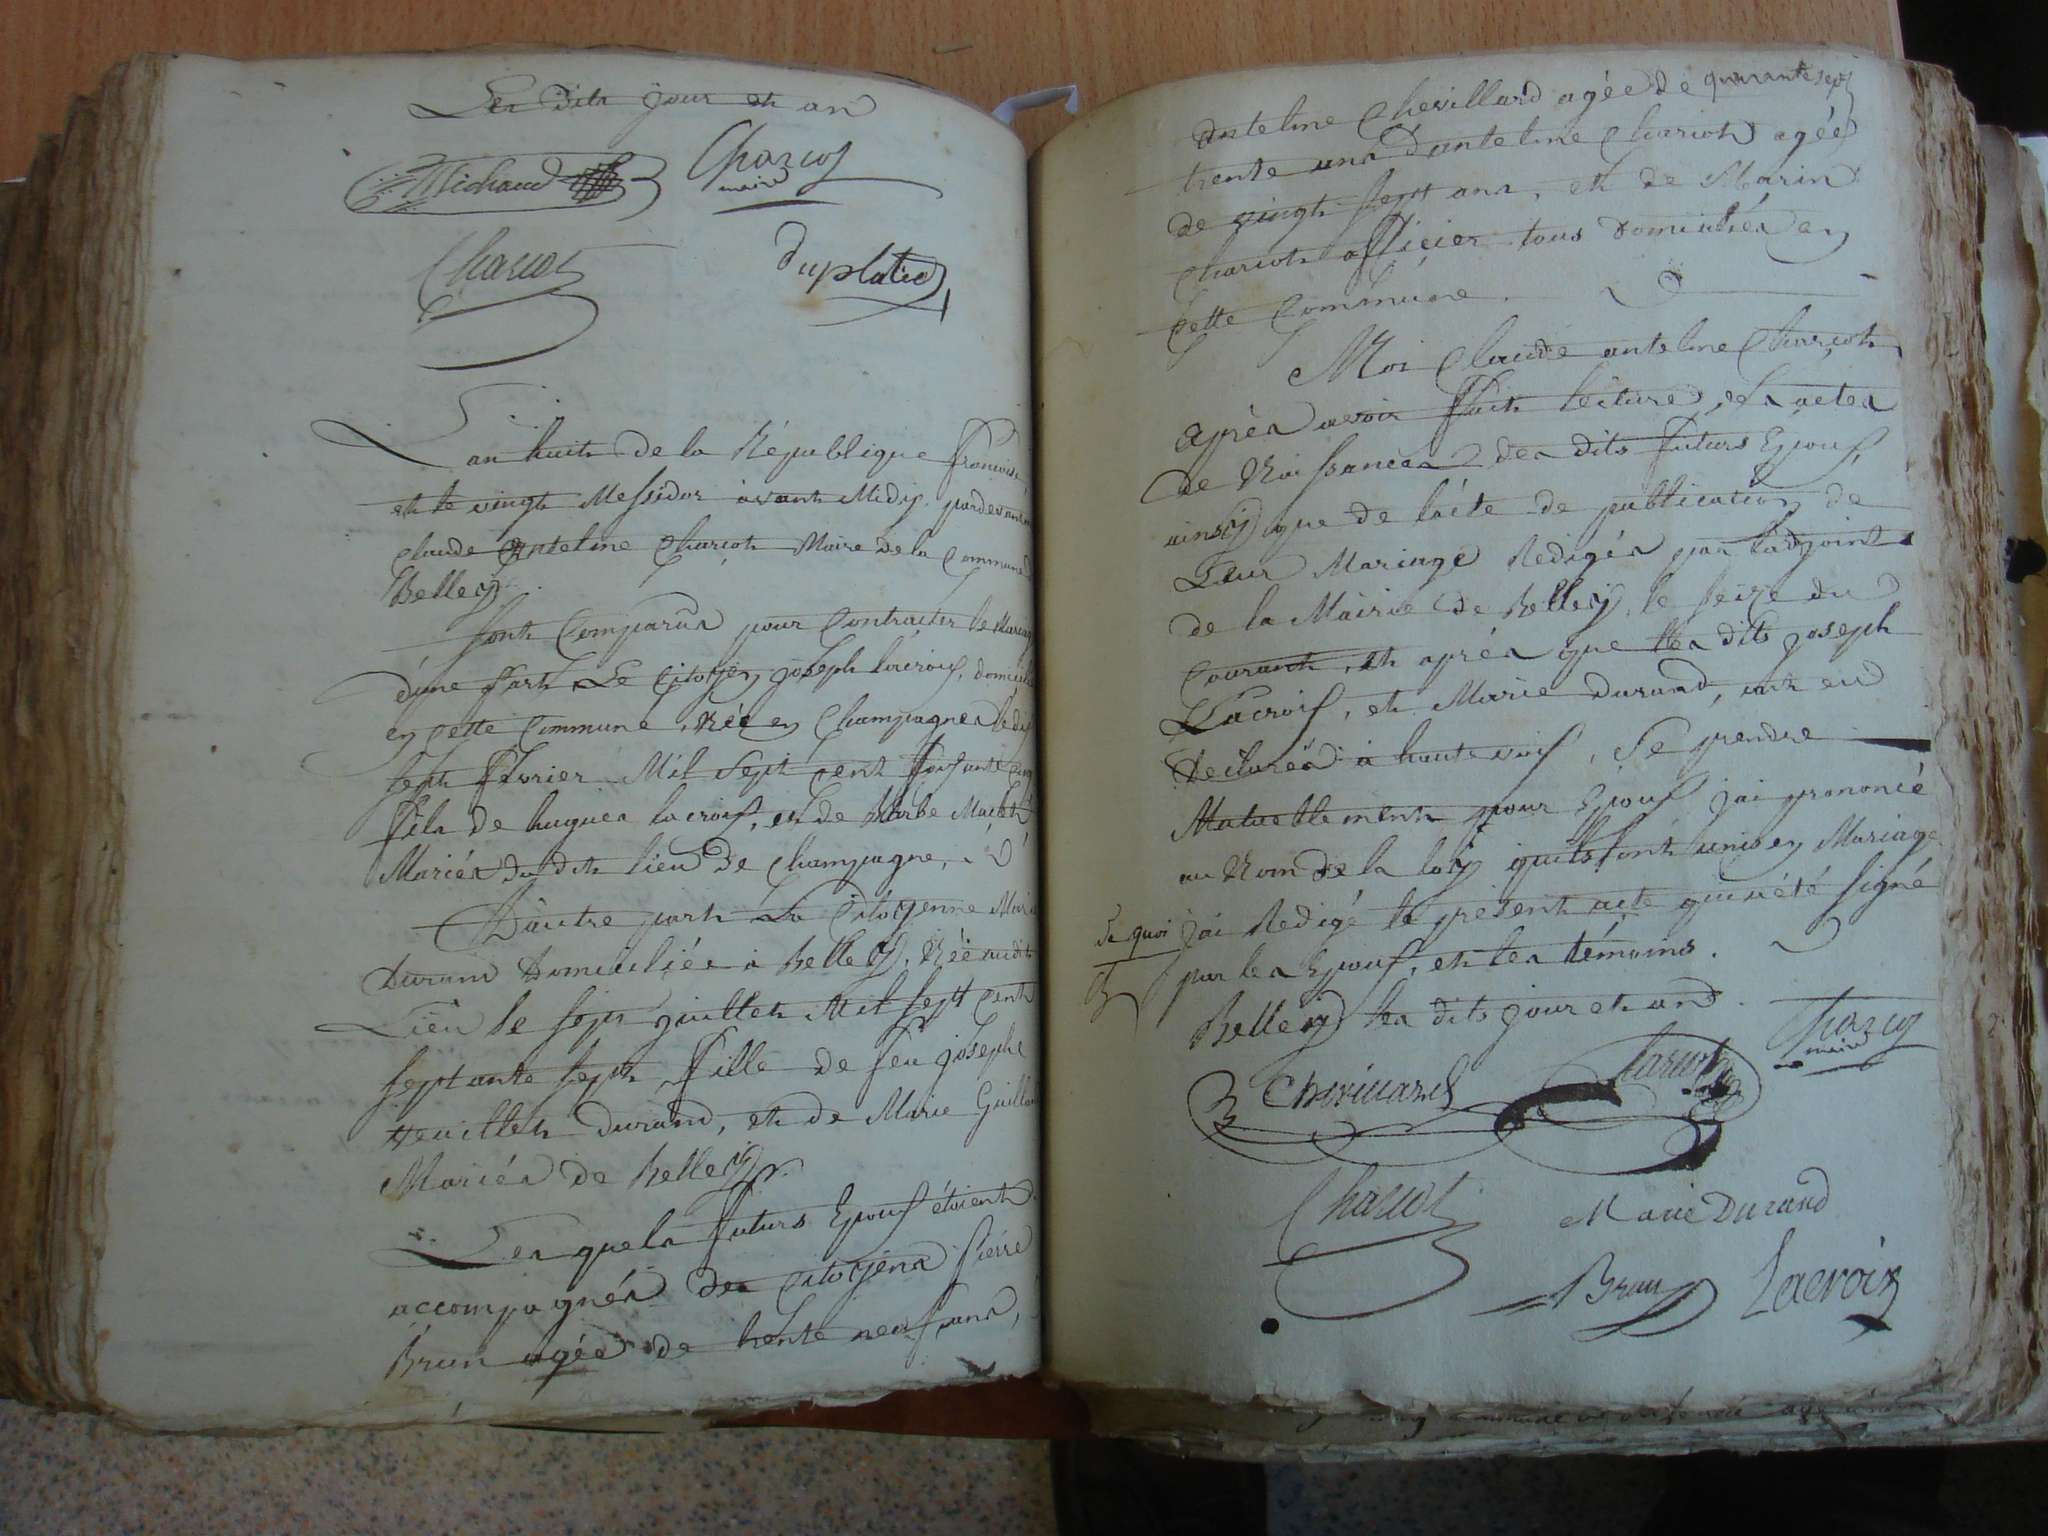 Les dits jour et an
Michaud
Charcot
maire
Charcot
duplatre
L'an huit de la République francoise
et le vingt Messidor avant Midy, pardevant
Claude Anteline Charcot Maire de la Commune
Belley.
sont Comparus pour Contracter le Mariage
d'une part Le Citoyen joseph lacroix, domicilié
en cette Commune, né en Champagne le dix
sept février Mil sept cent soixante cinq
fils de hugues lacroix, et de Barbe
Mariés du dit lieu de Champagne,
D'autre part La Citoyenne Marie
Durand Domiciliée à Belley, Née audit
Lieu le sept juillet Mil sept cent
septante sept, fille de feu josephe
Durand, et de Marie Guilland
Mariés de Belley.
Les quels futurs Epoux étoient
accompagnés des Citoyens Pierre
Brun agée de trente neuf ans,
anteline Chevillard agée de quarante sept
trente ans d'anteline Charcot agée
de vingt sept ans, et de Marin
Charcot officier tous Domiciliés en
cette Commune.
Moi Claude anteline Charcot
après avoir fait lecture des actes
de Naissances des dits futurs Epoux,
ainsy que de l'acte de publication de
Leur Mariage Redigés par l'adjoint
de la Mairie de Belley, le seize du
Courant, et après que les dits joseph
Lacroix, et Marie durand, ont eu
declarés à haute voix, se prendre
Mutuellement pour Epoux j'ai prononcé
au Nom de la loy quils sont unis en Mariage
de quoi j'ai Redigé le present acte qui a été signé
par les Epoux, et les témoins.
Belley les dits jour et an.
Charcot
maire
Chevillard
Charcot
Charcot
Marie Durand
Brun
Lacroix